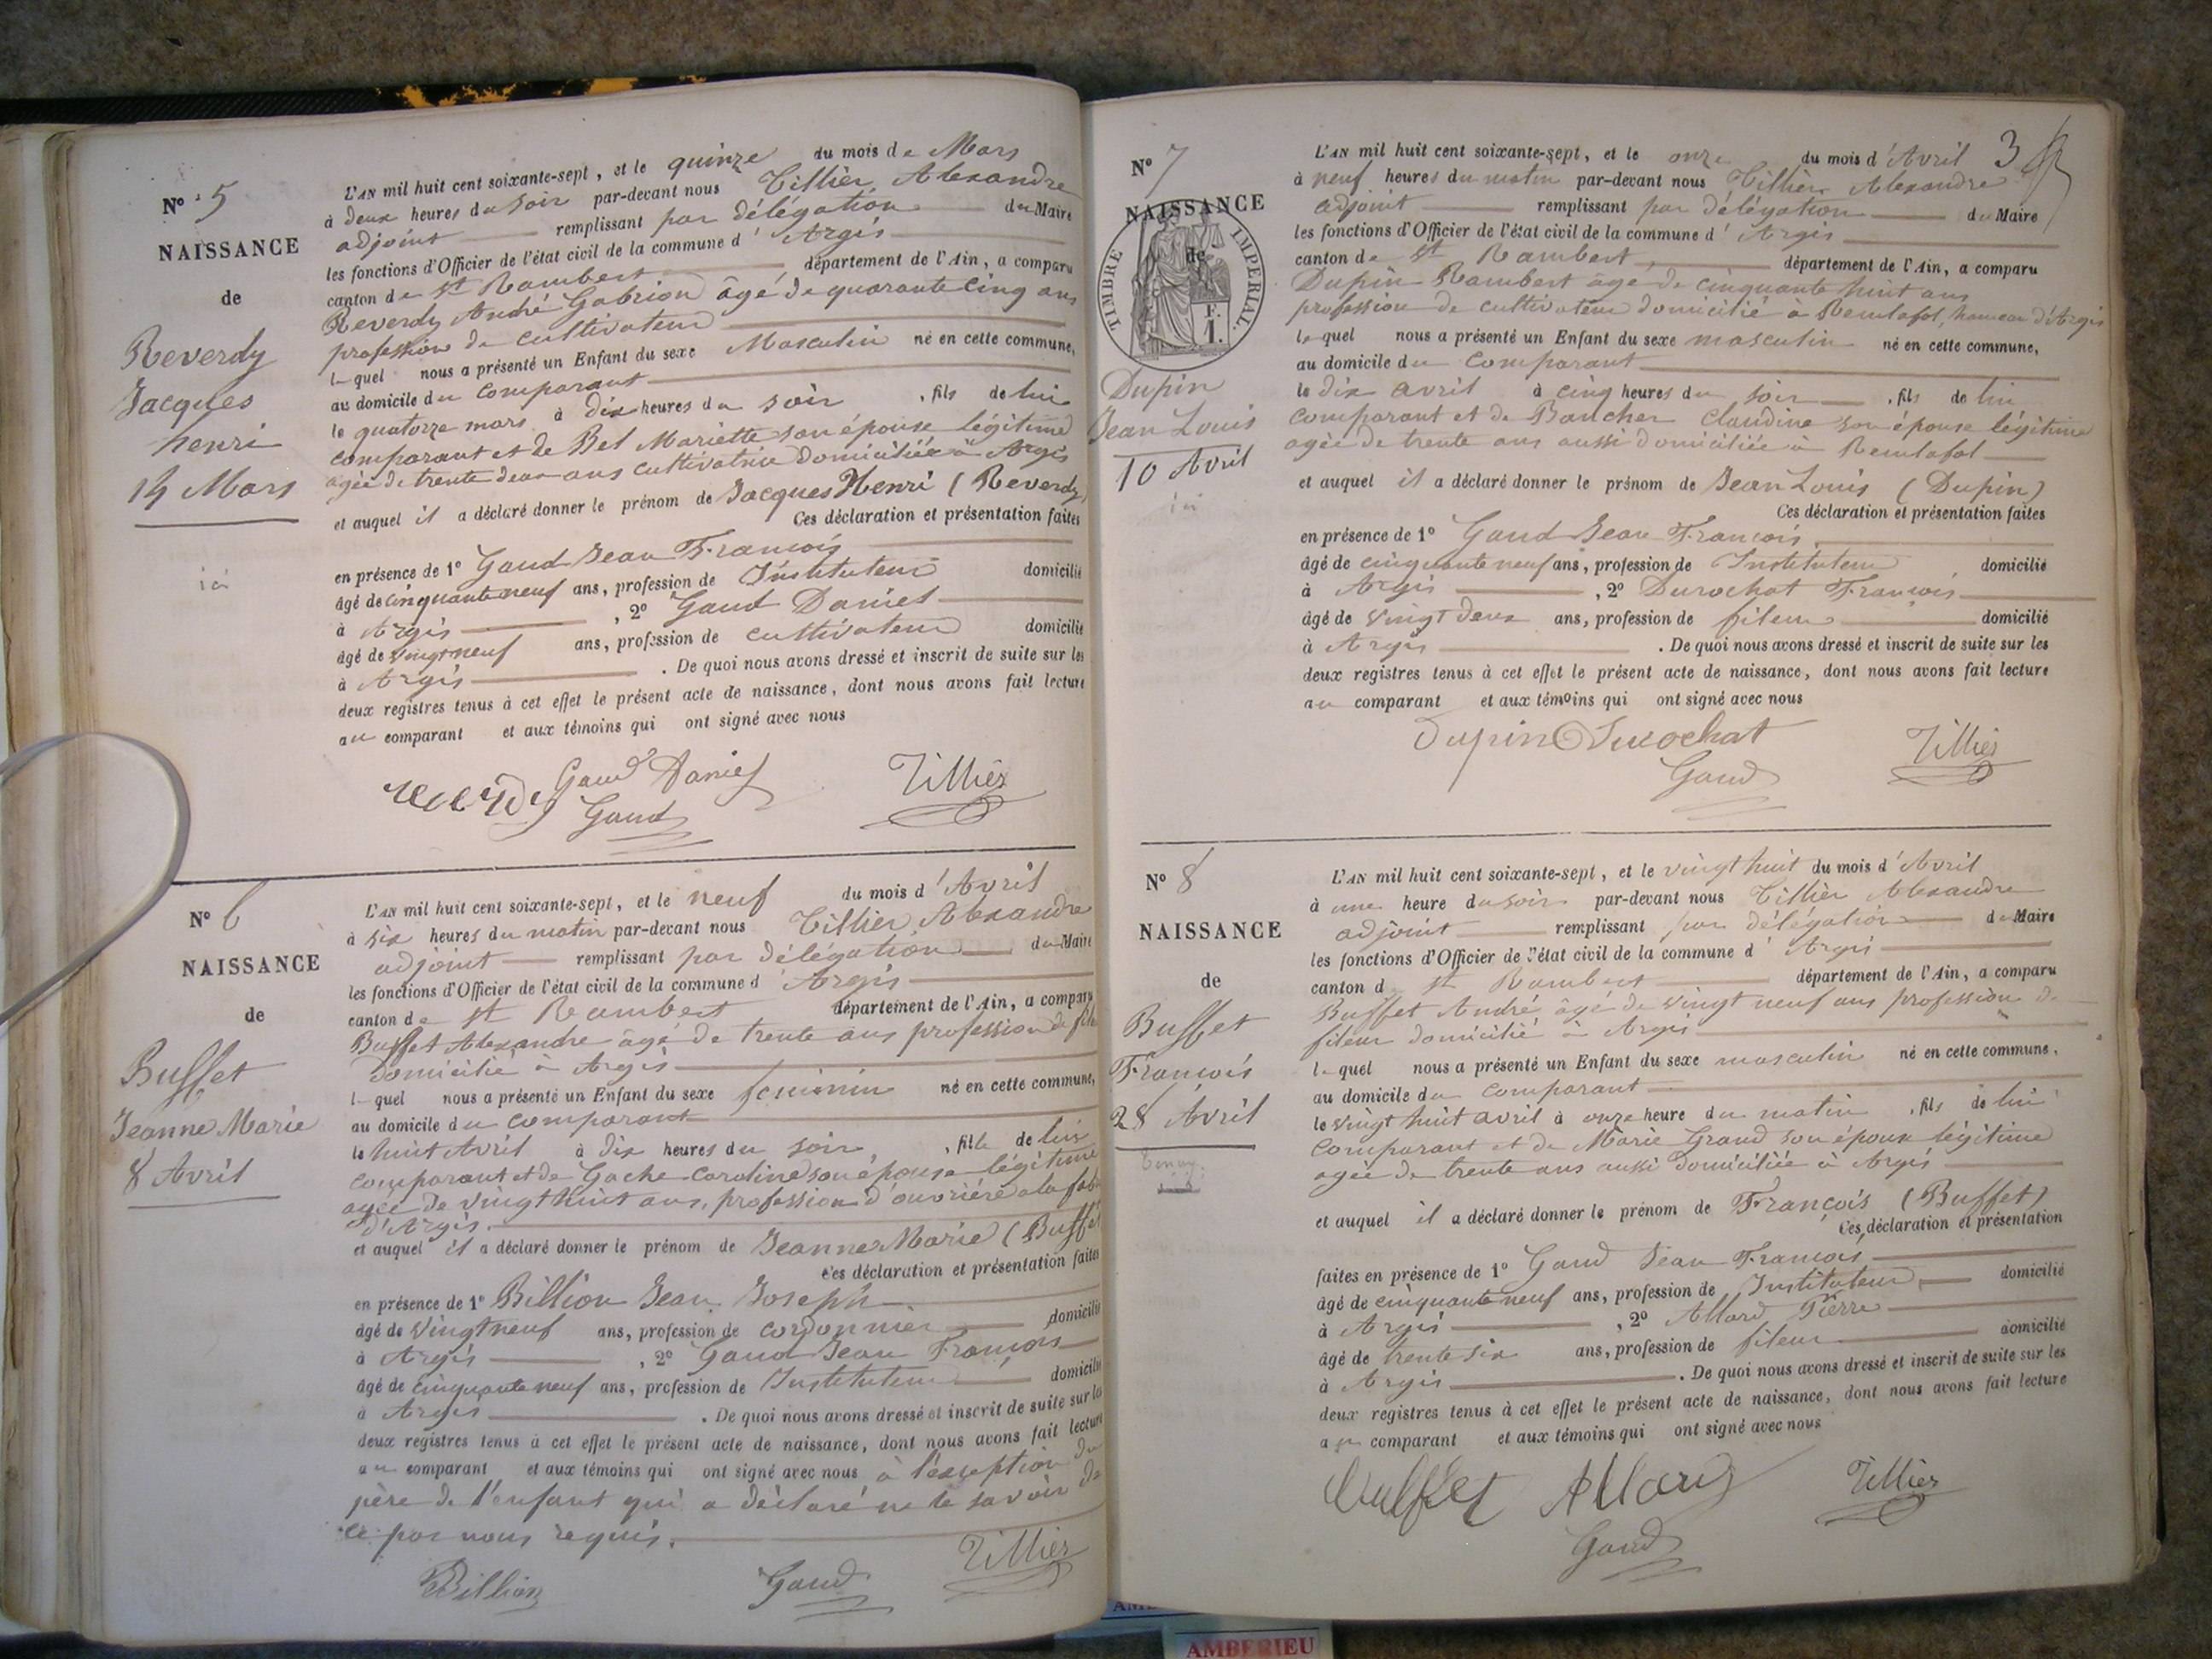 N° 5
NAISSANCE
de
Reverdy
Jacques
henri
14 Mars
ici
L'AN mil huit cent soixante-sept, et le quinze du mois de Mars
à deux heures du soir par-devant nous Tillier Alexandre
adjoint remplissant par délégation du Maire
les fonctions d'Officier de l'état civil de la commune d'Argis
canton de St Rambert département de l'Ain, a comparu
Reverdy André Gabriel âgé de quarante cinq ans
profession de cultivateur
lequel nous a présenté un Enfant du sexe Masculin né en cette commune,
au domicile du comparant
le quatorze mars à dix heures du soir, fils de lui
comparant et de Bel Mariette son épouse légitime
agée de trente deux ans cultivatrice domiciliée à Argis
et auquel il a déclaré donner le prénom de Jacques Henri (Reverdy)
Ces déclaration et présentation faites
en présence de 1° Gaud Jean François
âgé de cinquante neuf ans, profession de Instituteur domicilié
à Argis, 2° Gaud Daniel
âgé de vingt neuf ans, profession de cultivateur domicilié
à Argis. De quoi nous avons dressé et inscrit de suite sur les
deux registres tenus à cet effet le présent acte de naissance, dont nous avons fait lecture
au comparant et aux témoins qui ont signé avec nous
reverdy Gaud Daniel Tillier
Gaud
N° 6
NAISSANCE
de
Buffet
Jeanne Marie
8 Avril
L'AN mil huit cent soixante-sept, et le neuf du mois d'Avril
à six heures du matin par-devant nous Tillier Alexandre
adjoint remplissant par délégation du Maire
les fonctions d'Officier de l'état civil de la commune d'Argis
canton de St Rambert département de l'Ain, a comparu
Buffet Alexandre âgé de trente ans profession de
domicilié à Argis
lequel nous a présenté un Enfant du sexe feminin né en cette commune,
au domicile du comparant
le huit Avril à dix heures du soir, fille de lui
comparant et de Gache Caroline son épouse légitime
agée de vingt huit ans, profession d'ouvrière a la
d'Argis
et auquel il a déclaré donner le prénom de Jeanne Marie (Buffet
Ces déclaration et présentation faites
en présence de 1° Billion Jean Joseph
âgé de vingt neuf ans, profession de cordonnier domicilié
à Argis, 2° Gaud Jean François
âgé de cinquante neuf ans, profession de Instituteur domicilié
à Argis. De quoi nous avons dressé et inscrit de suite sur les
deux registres tenus à cet effet le présent acte de naissance, dont nous avons fait lecture
au comparant et aux témoins qui ont signé avec nous à l'exception du
père de l'enfant qui a déclaré ne le savoir de
ce par nous requis.
Billion Gaud Tillier
3
N° 7
NAISSANCE
de
TIMBRE IMPERIAL
1 F.
Dupin
Jean Louis
10 Avril
ici
L'AN mil huit cent soixante-sept, et le onze du mois d'Avril
à neuf heures du matin par-devant nous Tillier Alexandre
adjoint remplissant par délégation du Maire
les fonctions d'Officier de l'état civil de la commune d'Argis
canton de St Rambert département de l'Ain, a comparu
Dupin Rambert âgé de cinquante huit ans
profession de cultivateur domicilié à Reculafol, hameau d'Argis
lequel nous a présenté un Enfant du sexe masculin né en cette commune,
au domicile du comparant
le dix avril à cinq heures du soir, fils de lui
comparant et de Baucher Claudine son épouse légitime
agée de trente ans aussi domiciliée à Reculafol
et auquel il a déclaré donner le prénom de Jean Louis (Dupin)
Ces déclaration et présentation faites
en présence de 1° Gaud Jean François
âgé de cinquante neuf ans, profession de Instituteur domicilié
à Argis, 2° Durochat François
âgé de vingt deux ans, profession de fileur domicilié
à Argis. De quoi nous avons dressé et inscrit de suite sur les
deux registres tenus à cet effet le présent acte de naissance, dont nous avons fait lecture
au comparant et aux témoins qui ont signé avec nous
Dupin Durochat Tillier
Gaud
N° 8
NAISSANCE
de
Buffet
François
28 Avril
L'AN mil huit cent soixante-sept, et le vingt huit du mois d'Avril
à une heure du soir par-devant nous Tillier Alexandre
adjoint remplissant par délégation du Maire
les fonctions d'Officier de l'état civil de la commune d'Argis
canton d St Rambert département de l'Ain, a comparu
Buffet André âgé de vingt neuf ans profession de
fileur domicilié à Argis
lequel nous a présenté un Enfant du sexe masculin né en cette commune,
au domicile du comparant
le vingt huit avril à onze heure du matin, fils de lui
comparant et de Marie Grand son épouse légitime
agée de trente ans aussi domiciliée à Argis
et auquel il a déclaré donner le prénom de François (Buffet)
Ces déclaration et présentation
faites en présence de 1° Gaud Jean François
âgé de cinquante neuf ans, profession de Instituteur domicilié
à Argis, 2° Allard Pierre
âgé de trente six ans, profession de fileur domicilié
à Argis. De quoi nous avons dressé et inscrit de suite sur les
deux registres tenus à cet effet le présent acte de naissance, dont nous avons fait lecture
au comparant et aux témoins qui ont signé avec nous
Buffet Allard Tillier
Gaud
AMBERIEU